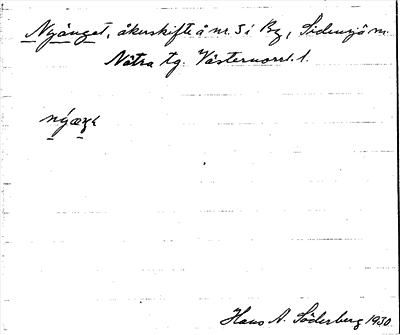 Nyänget, åkerskifte å nr. 3 i By, Sidensjö sn.
Nätra tg. Västernorrl. l.
Hans A. Söderberg 1930